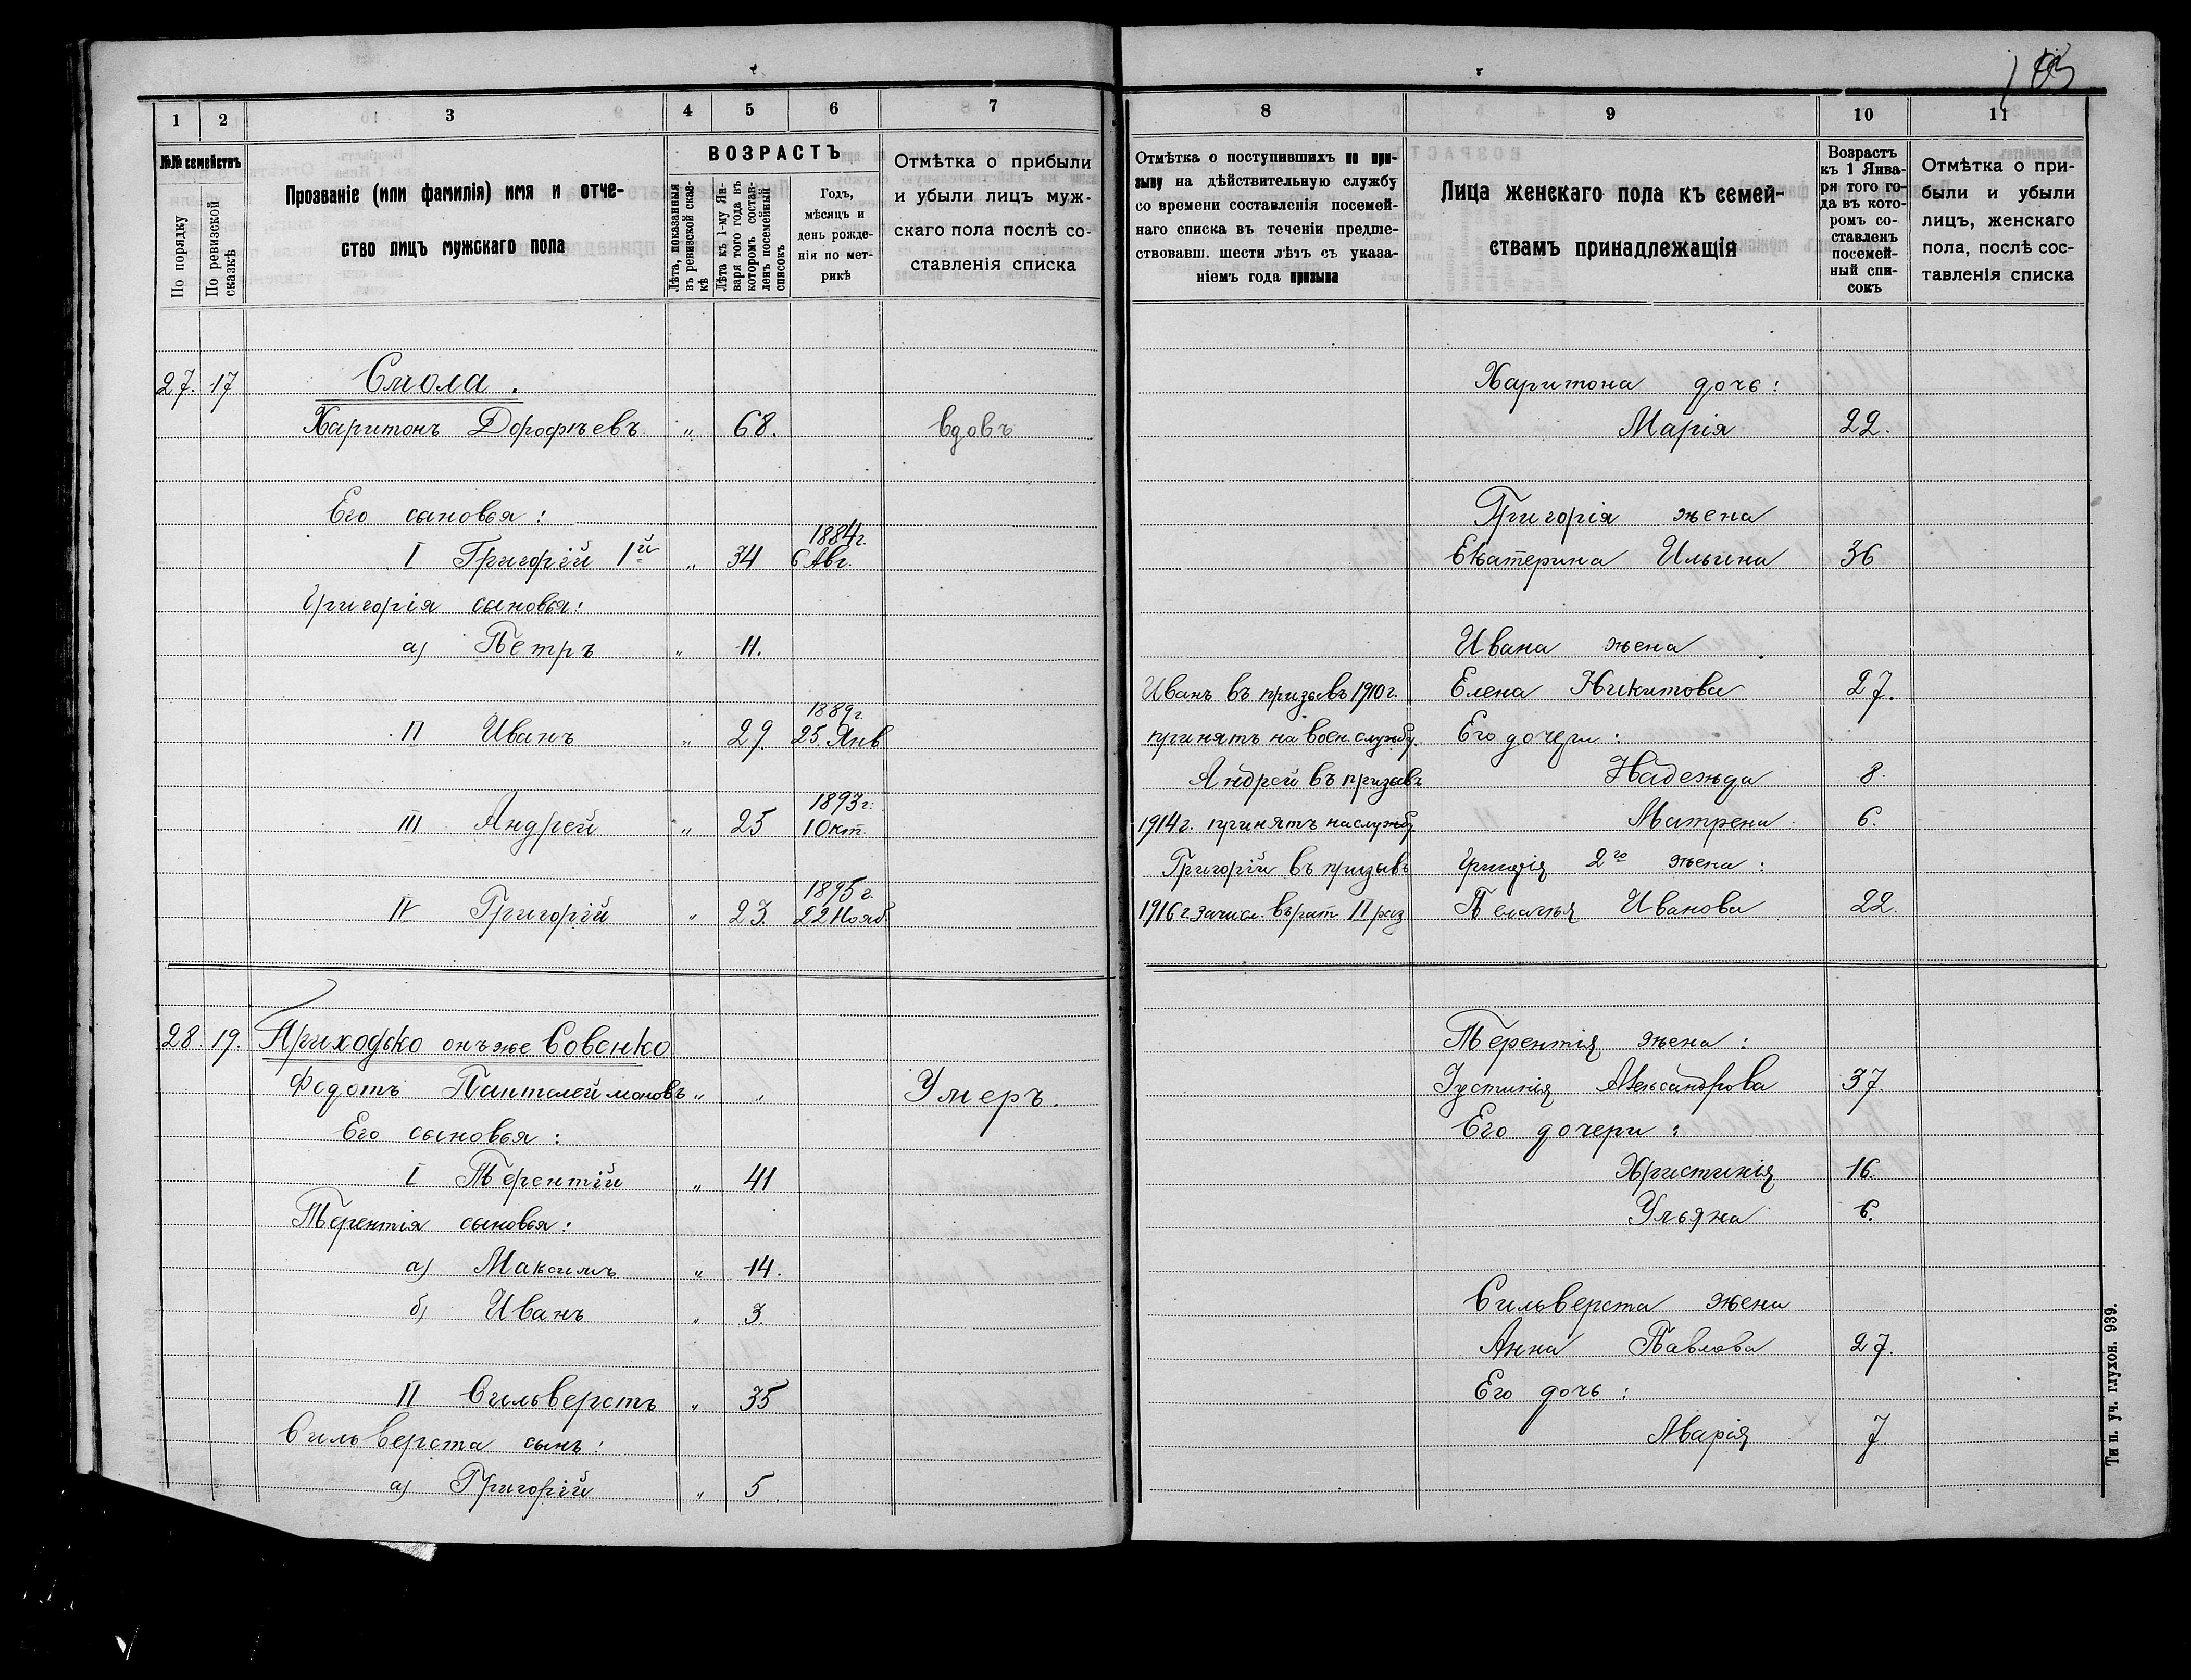 103
1 2 3 4 5 6 7
№№ семействъ
По порядку
По ревизской сказкѣ
Прозваніе (или фамилія) имя и отче-
ство лицъ мужскаго пола
ВОЗРАСТЪ
Лѣта, показанныя въ ревизской сказ-кѣ
Лѣта къ 1-му Ян-варя того года въ которомъ состав-ленъ посемейный списокъ
Годъ,
мѣсяцъ и
день рожде-
нія по мет-
рикѣ
Отмѣтка о прибыли
и убыли лицъ муж-
скаго пола послѣ со-
ставленія списка
27. 17 Смола.
Харитонъ Дорофѣевъ " 68. вдовъ
Его сыновья:
1884г.
I Григорій 1й " 34 6 Авг.
Григорія сыновья:
а) Петръ " 11.
1889г.
II Иванъ " 29. 25 Янв
1893г.
III Андрей " 25 1 Окт.
1895г.
IV Григорій " 23. 22 Нояб.
28. 19. Приходько онъ же Совенко
Федотъ Пантелеймоновъ " " Умеръ.
Его сыновья:
I Терентій " 41
Терентія сыновья:
а) Максимъ " 14.
б) Иванъ " 3.
II Сильверстъ " 35
Сильверста сынъ:
а) Григорій " 5.
8 9 10 11
Отмѣтка о поступившихъ по при-
зыву на дѣйствительную службу
со времени составленія посемей-
наго списка въ теченіи предше-
ствовавш. шести лѣтъ съ указа-
ніемъ года призыва
Лица женскаго пола къ семей-
ствамъ принадлежащія
Возрастъ
къ 1 Янва-
ря того го-
да въ кото-
ромъ со-
ставленъ
посемей-
ный спи-
сокъ
Отмѣтка о при-
были и убыли
лицъ, женскаго
пола, послѣ сос-
тавленія списка
Харитона дочь:
Марія 22.
Григорія жена
Екатерина Ильина 36
Ивана жена
Иванъ въ призывъ 1910г. Елена Никитова 27.
принятъ на воен. службу. Его дочери:
Андрей въ призывъ Надежда 8.
1914г. принятъ на службу Матрена 6.
Григорій въ призывъ Григорія 2го жена:
1916г. зачисл. въ рат. II раз. Пелагѣя Иванова 22.
Терентія жена:
Іустинія Александрова 37.
Его дочери:
Христинія 16.
Ульяна 6.
Сильверста жена
Анна Павлова 27.
Его дочь:
Марія 7
Тип. уч. глухон. 939.